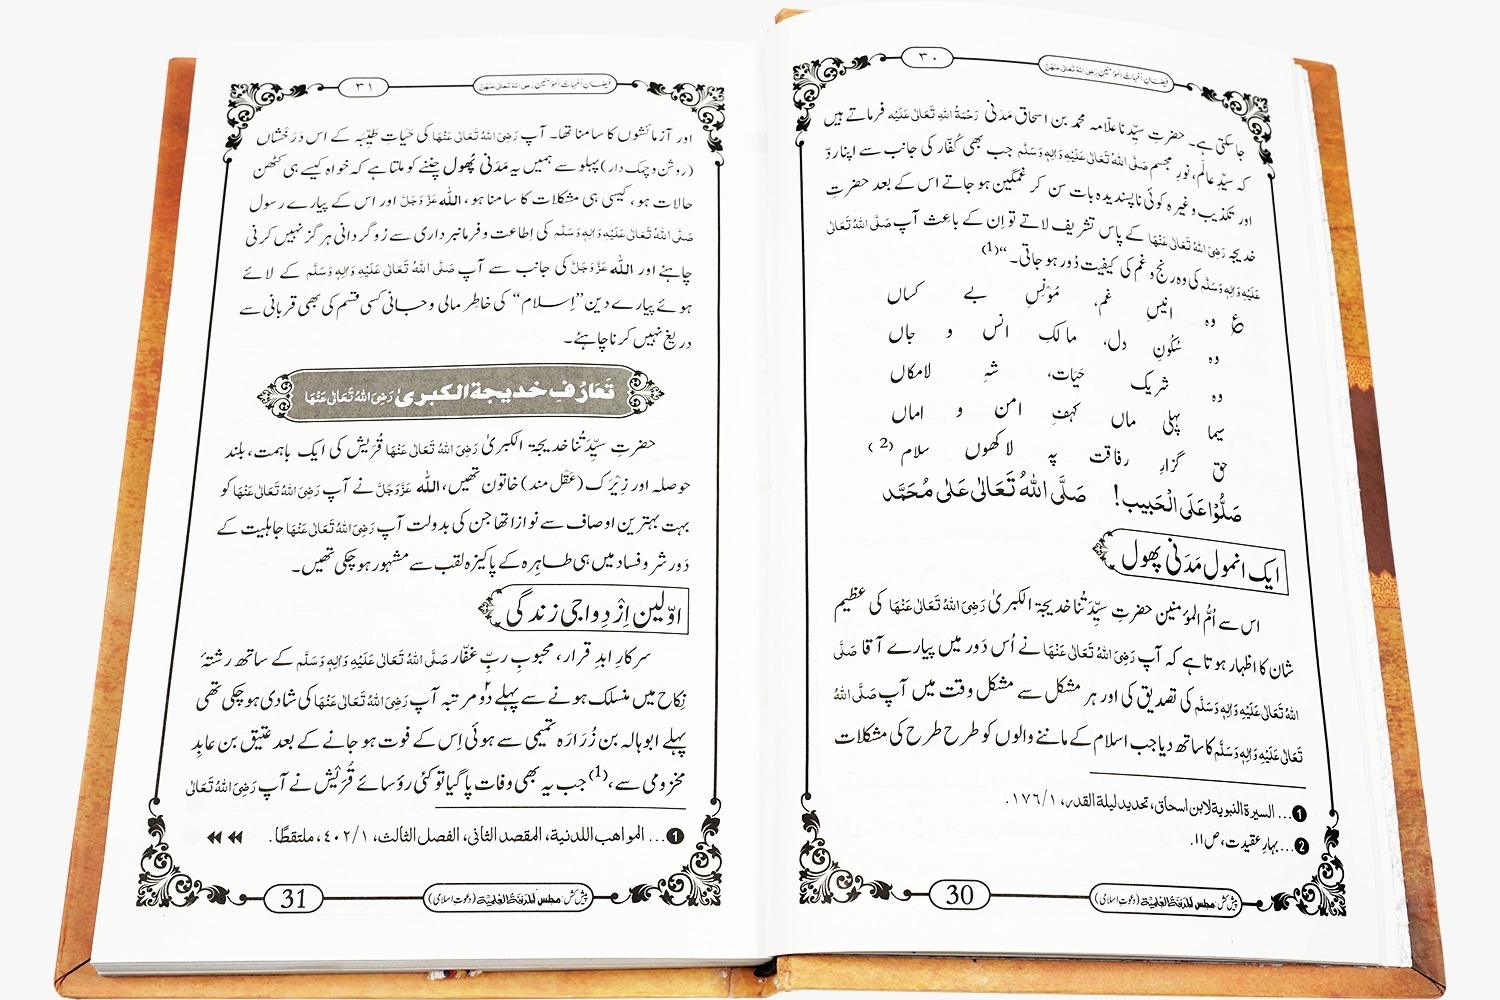 ۳۰
فیضانِ اُمّہاتُ المؤمنین رَضِیَ اللہُ تَعَالٰی عَنْہُنَّ
جاسکتی ہے۔ حضرتِ سیِّدنا علّامہ محمد بن اسحاق مَدَنی رَحْمَۃُ اللہِ تَعَالٰی عَلَیْہ فرماتے ہیں
کہ سیِّدِ عالَم، نورِ مجسم صَلَّی اللہُ تَعَالٰی عَلَیْہِ وَاٰلِہٖ وَسَلَّم جب بھی کُفّار کی جانب سے اپنا ردّ
اور تکذیب وغیرہ کوئی ناپسندیدہ بات سن کر غمگین ہو جاتے اس کے بعد حضرتِ
خدیجہ رَضِیَ اللہُ تَعَالٰی عَنْہَا کے پاس تشریف لاتے تو اِن کے باعِث آپ صَلَّی اللہُ تَعَالٰی
عَلَیْہِ وَاٰلِہٖ وَسَلَّم کی وہ رنج و غم کی کیفیت دُور ہو جاتی۔“ (1)
؏ وہ انیسِ غم، مُوْنِسِ بے کساں
وہ سُکُونِ دل، مالکِ انس و جاں
وہ شریکِ حَیَات، شہِ لامکاں
سیما پہلی ماں کہفِ امن و اماں
حق گزارِ رفاقت پہ لاکھوں سلام (2)
صَلُّوْا عَلَی الْحَبِیب! صَلَّی اللہُ تَعَالٰی عَلٰی مُحَمَّد
ایک انمول مَدَنی پھول
اس سے اُمُّ المؤمنین حضرتِ سیِّدَتُنا خدیجۃ الکبریٰ رَضِیَ اللہُ تَعَالٰی عَنْہَا کی عظیم
شان کا اظہار ہوتا ہے کہ آپ رَضِیَ اللہُ تَعَالٰی عَنْہَا نے اُس دَور میں پیارے آقا صَلَّی
اللہُ تَعَالٰی عَلَیْہِ وَاٰلِہٖ وَسَلَّم کی تصدیق کی اور ہر مشکل سے مشکل وقت میں آپ صَلَّی اللہُ
تَعَالٰی عَلَیْہِ وَاٰلِہٖ وَسَلَّم کا ساتھ دیا جب اسلام کے ماننے والوں کو طرح طرح کی مشکلات
❶... السیرۃ النبویۃ لابن اسحاق، تحدید لیلۃ القدر، ۱/۱۷۶.
❷... بہارِ عقیدت، ص۱۱.
پیش کش: مجلس المدینۃ العلمیۃ (دعوتِ اسلامی)
30
۳۱
فیضانِ اُمّہاتُ المؤمنین رَضِیَ اللہُ تَعَالٰی عَنْہُنَّ
اور آزمائشوں کا سامنا تھا۔ آپ رَضِیَ اللہُ تَعَالٰی عَنْہَا کی حَیاتِ طیِّبَہ کے اس دَرَخْشاں
(روشن و چمک دار) پہلو سے ہمیں یہ مَدَنی پھول چننے کو ملتا ہے کہ خواہ کیسے ہی کٹھن
حالات ہو، کیسی ہی مشکلات کا سامنا ہو، اللہ عَزَّوَجَلَّ اور اس کے پیارے رسول
صَلَّی اللہُ تَعَالٰی عَلَیْہِ وَاٰلِہٖ وَسَلَّم کی اِطاعت و فرمانبرداری سے رُوگردانی ہرگز نہیں کرنی
چاہئے اور اللہ عَزَّوَجَلَّ کی جانب سے آپ صَلَّی اللہُ تَعَالٰی عَلَیْہِ وَاٰلِہٖ وَسَلَّم کے لائے
ہوئے پیارے دین ”اِسلام“ کی خاطر مالی و جانی کسی قسم کی بھی قربانی سے
دریغ نہیں کرنا چاہئے۔
تَعَارُفِ خدیجۃ الکبریٰ رَضِیَ اللہُ تَعَالٰی عَنْہَا
حضرتِ سیِّدَتُنا خدیجۃ الکبریٰ رَضِیَ اللہُ تَعَالٰی عَنْہَا قُرَیْش کی ایک باہمت، بلند
حوصلہ اور زِیْرَک (عَقْل مند) خاتون تھیں، اللہ عَزَّوَجَلَّ نے آپ رَضِیَ اللہُ تَعَالٰی عَنْہَا کو
بہت بہترین اوصاف سے نوازا تھا جن کی بدولت آپ رَضِیَ اللہُ تَعَالٰی عَنْہَا جاہلیت کے
دَورِ شر و فساد میں ہی طاہِرہ کے پاکیزہ لقب سے مشہور ہو چکی تھیں۔
اوّلین اِزْدِواجی زندگی
سرکارِ ابدِ قرار، محبوبِ ربِّ غفّار صَلَّی اللہُ تَعَالٰی عَلَیْہِ وَاٰلِہٖ وَسَلَّم کے ساتھ رشتۂ
نِکاح میں منسلک ہونے سے پہلے دو مرتبہ آپ رَضِیَ اللہُ تَعَالٰی عَنْہَا کی شادی ہو چکی تھی
پہلے ابوہالہ بن زُرَارَہ تمیمی سے ہوئی اِس کے فوت ہو جانے کے بعد عتیق بن عابِد
مخزومی سے، (1) جب یہ بھی وفات پا گیا تو کئی رؤسائے قُرَیْش نے آپ رَضِیَ اللہُ تَعَالٰی
❶... المواھب اللدنیۃ، المقصد الثانی، الفصل الثالث، ۱/۴۰۲، ملتقطًا.
پیش کش: مجلس المدینۃ العلمیۃ (دعوتِ اسلامی)
31